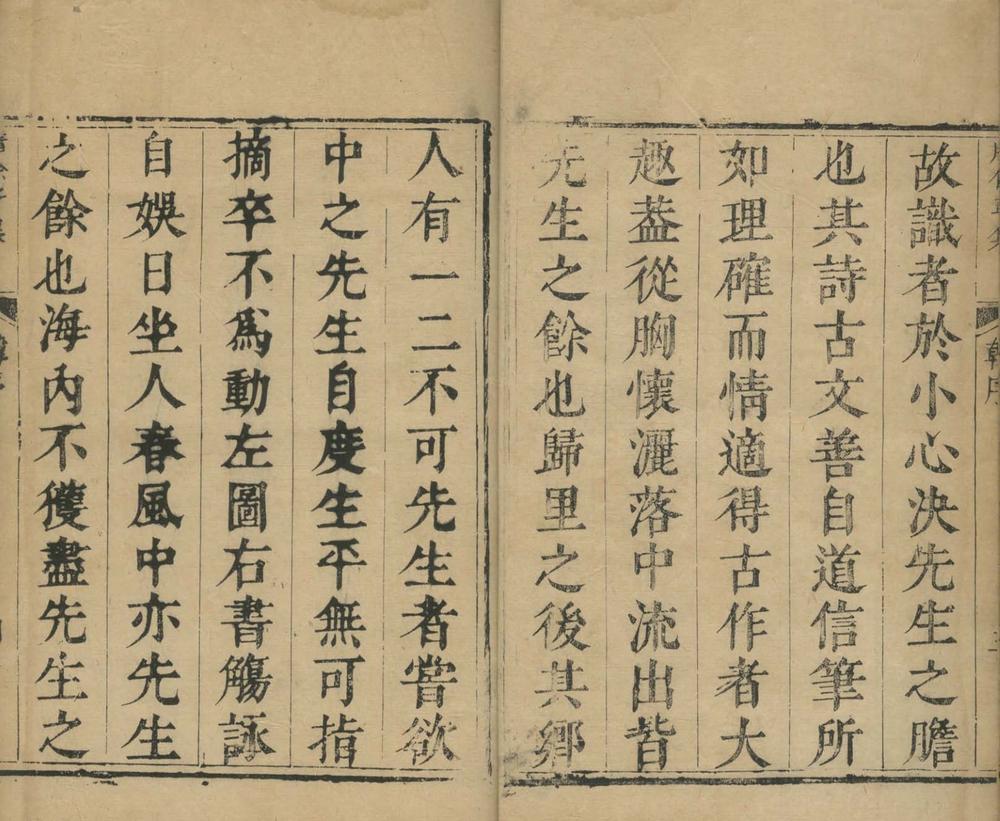 故識者於小心決先生之膽
也其詩古文善自道信筆所
如理確而情適得古作者大
趣葢從胸懷灑落中流出皆
先生之餘也歸里之後其鄉
人有一二不可先生者嘗欲
中之先生自度生平無可指
摘卒不為動左圖右書觴詠
自娛日坐人春風中亦先生
之餘也海內不獲盡先生之